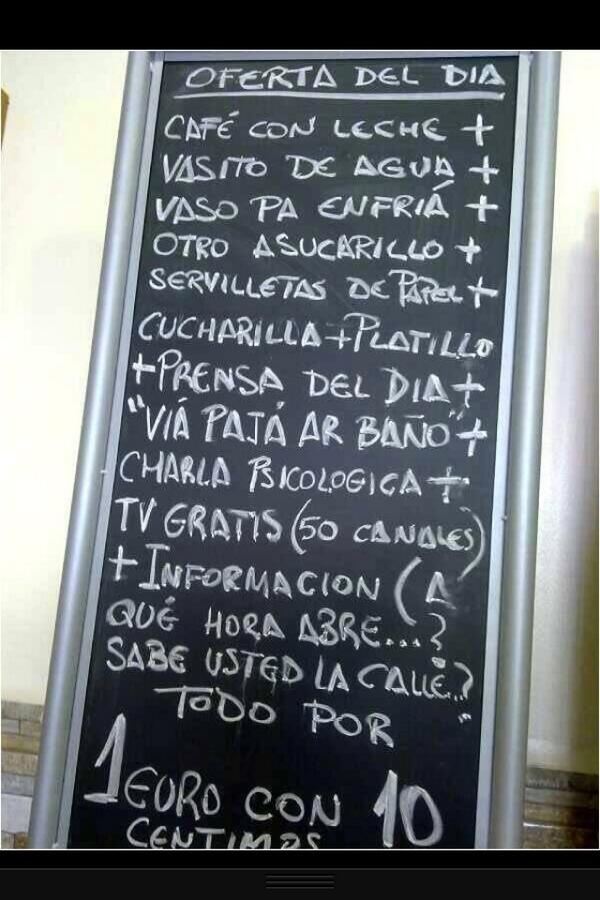 OFERTA DEL DIA
CAFÉ CON LECHE +
VASITO DE AGUA +
VASO PA ENFRIÁ +
OTRO ASUCARILLO +
SERVILLETAS DE PAPEL +
CUCHARILLA + PLATILLO
+ PRENSA DEL DIA +
"VIÁ PAJÁ AR BAÑO" +
CHARLA PSICOLOGICA +
TV GRATIS (50 CANALES)
+ INFORMACION (A
QUÉ HORA ABRE...?
SABE USTED LA CALLE..?
TODO POR "
1 EURO CON 10
CENTIMOS